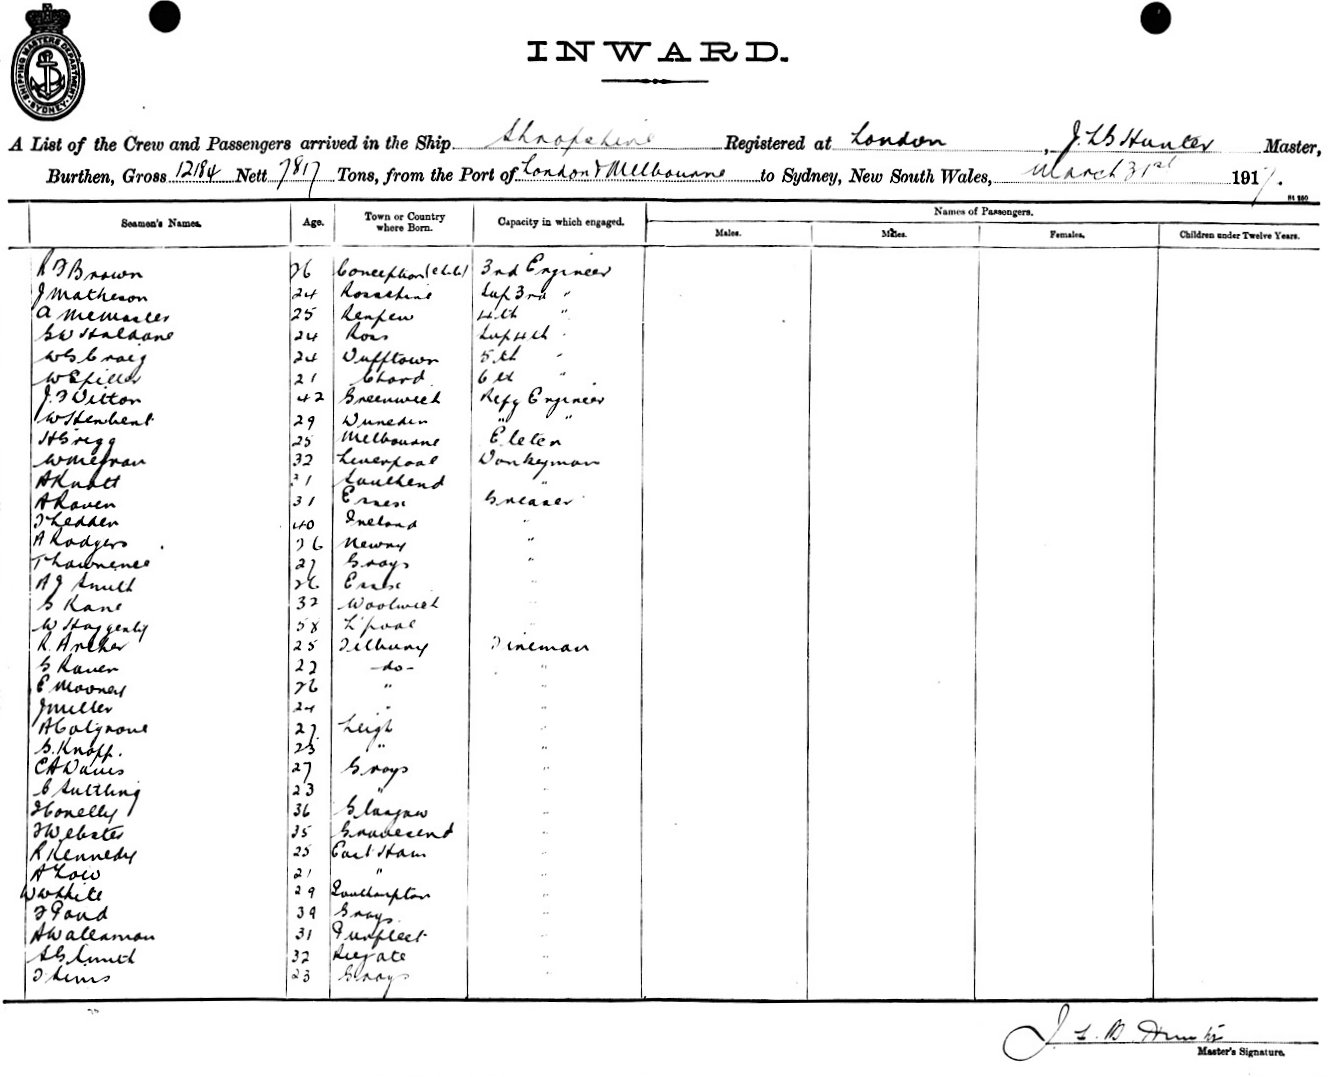 SHIPPING MASTERS DEPARTMENT SYDNEY
INWARD.
A List of the Crew and Passengers arrived in the Ship Shropshire Registered at London, J. L B Hunter Master,
Burthen, Gross 12184 Nett 7817 Tons, from the Port of London & Melbourne to Sydney, New South Wales, March 31st 1917.
Seamen's Names. Age. Town or Country where Born. Capacity in which engaged. Names of Passengers.
Males. Males. Females. Children under Twelve Years.
R F Brown 26 Conception 3rd Engineer
J Matheson 24 Rossshire Sup 3rd "
A McMaster 25 Renfrew 4th "
G W Haldane 24 Ross Sup 4th "
W G Craig 24 Dufftown 5th "
W Spiller 21 Chard 6th "
J F Ditton 42 Greenwich Refg Engineer
W Henbent 29 Dunedin " "
H Gregg 25 Melbourne Elctcn
W 32 Liverpool Donkeyman
A Knott 31 Southend "
A Raven 31 Essex Greaser
T Ledden 40 Ireland "
A Rodgers 26 Newry "
T Lawrence 27 Grays "
A J Smith 26 Essex "
G Kane 32 Woolwich "
W Haggenty 58 L'pool "
R. Archer 25 Tilbury Fireman
G Raven 22 -do- "
E Mooney 26 " "
J Miller 24 " "
A Colgrove 27 Leigh "
G. Knapp. 23 " "
C A Davis 27 Grays "
C Suttling 23 " "
J Conelly 36 Glasgow "
F Webster 35 Gravesend "
R Kennedy 25 East Ham "
A Low 21 " "
W White 29 Southampton "
F Pond 39 Grays "
A Wakeman 31 Purfleet "
A G Smith 32 Reigate "
F Sims 23 Grays "
J. L. B Hunter
Master's Signature.